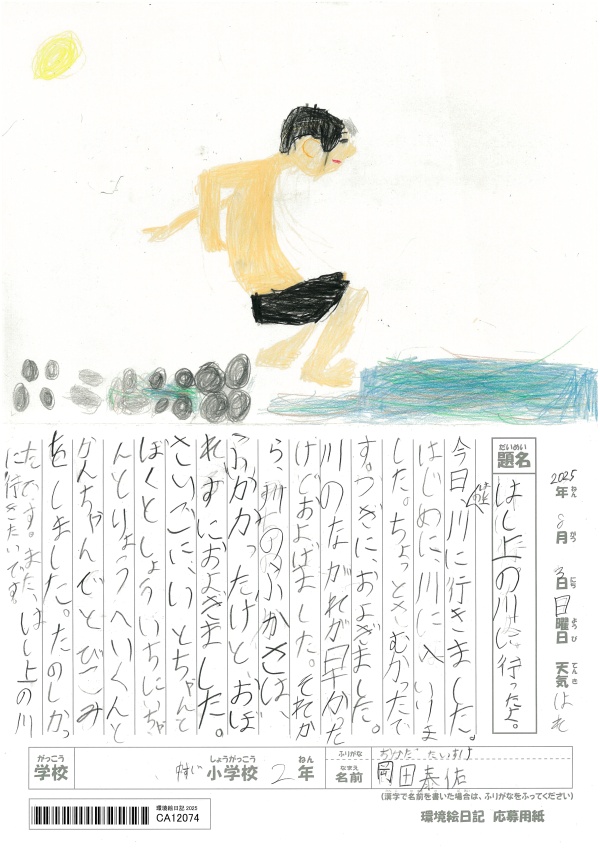 2025年 8月 3日 日曜日 天気 はれ
ねん がつ にち ようび てんき
だいめい
題名 はし上の川に行ったよ。
今日、川に行きました。
はじめに、川に入いりま
した。ちょっとさむかったで
す。つぎに、およぎました。
川のながれが早かった
けどおよげました。それか
ら、川のふかさは、
ふかかったけどおぼ
れずにおよぎました。
さいごに、いとちゃんと
ぼくとしょういちにいちゃ
んとりょうへいくんと
かんちゃんでとびごみ
をしました。たのしかっ
たです。また、はし上の川
に行きたいです。
がっこう しょうがっこう ねん ふりがな おかだ たいすけ
学校 小学校 2年 なまえ 名前 岡田泰佑
(漢字で名前を書いた場合は、ふりがなをふってください)
環境絵日記 2025
CA12074
環境絵日記 応募用紙